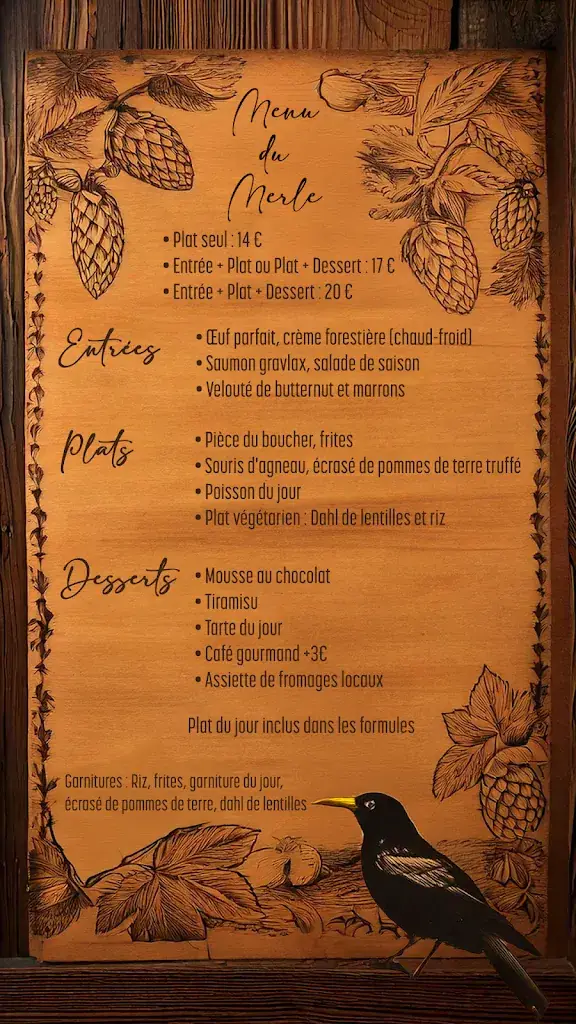 Menu
du
Merle
• Plat seul : 14 €
• Entrée + Plat ou Plat + Dessert : 17 €
• Entrée + Plat + Dessert : 20 €
Entrées
• Œuf parfait, crème forestière (chaud-froid)
• Saumon gravlax, salade de saison
• Velouté de butternut et marrons
Plats
• Pièce du boucher, frites
• Souris d'agneau, écrasé de pommes de terre truffé
• Poisson du jour
• Plat végétarien : Dahl de lentilles et riz
Desserts
• Mousse au chocolat
• Tiramisu
• Tarte du jour
• Café gourmand +3€
• Assiette de fromages locaux
Plat du jour inclus dans les formules
Garnitures : Riz, frites, garniture du jour,
écrasé de pommes de terre, dahl de lentilles